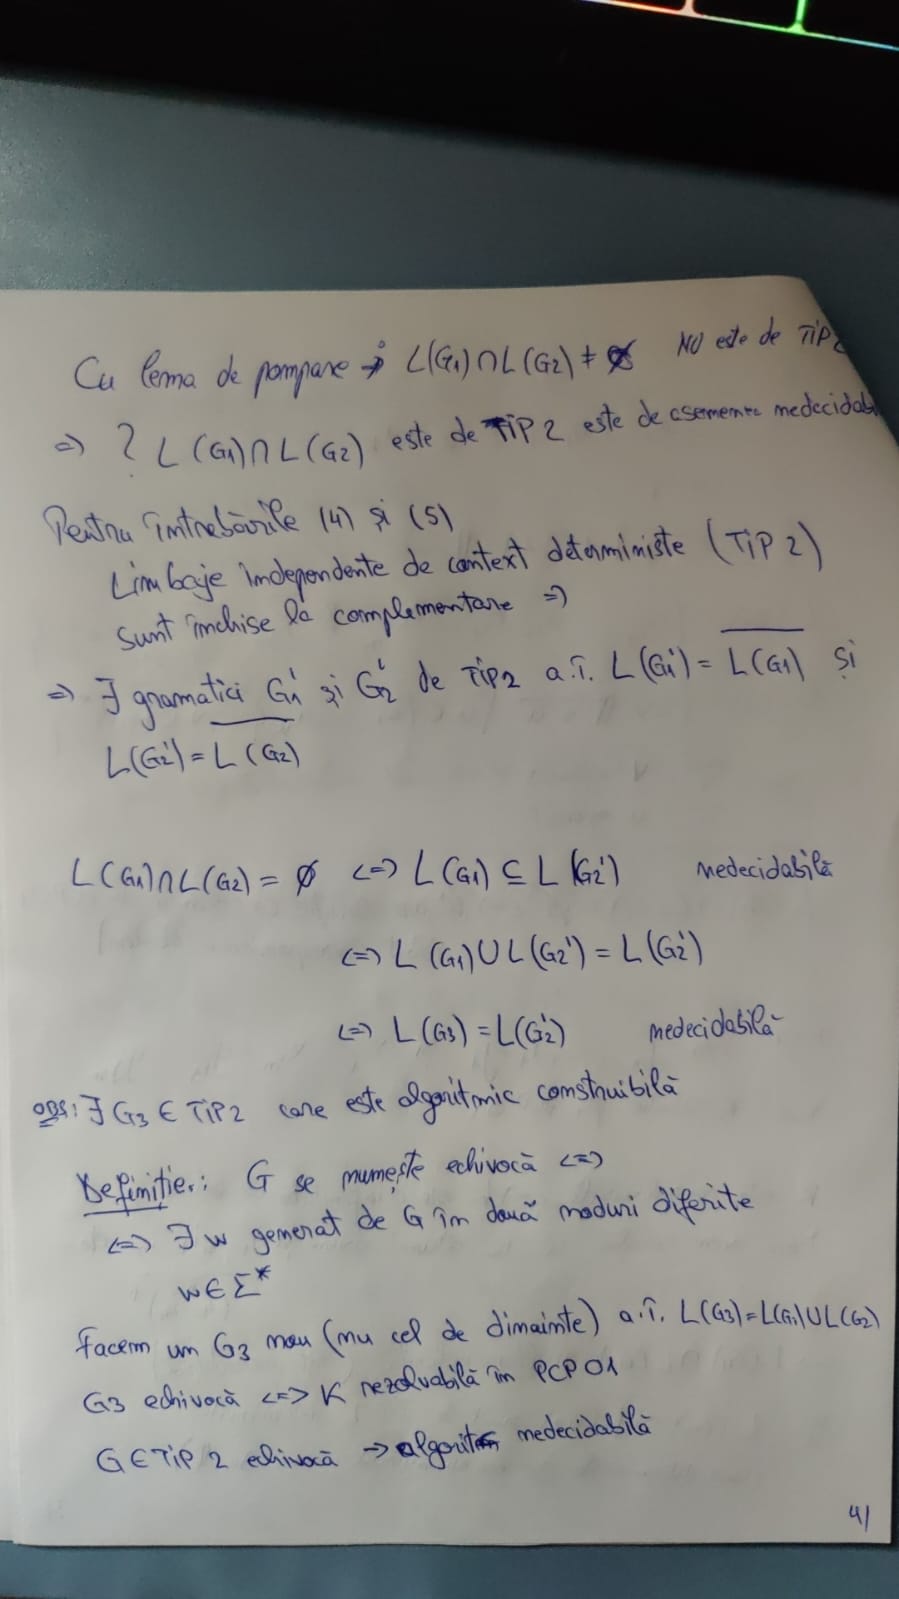 Cu lema de pompare → L(G1)∩L(G2) ≠ ∅ NU este de TIP 2
=> ? L(G1)∩L(G2) este de TIP 2 este de asemenea nedecidabi
Pentru întrebările (4) și (5)
Limbaje independente de context deterministe (TIP 2)
sunt închise la complementare =>
=> ∃ gramatici G1' și G2' de TIP2 a.î. L(G1') = \overline{L(G1)} și
L(G2') = \overline{L(G2)}
L(G1)∩L(G2) = ∅ <=> L(G1) ⊆ L(G2') nedecidabilă
<=> L(G1) ∪ L(G2') = L(G2')
<=> L(G3) = L(G2') nedecidabilă
OBS: ∃ G3 ∈ TIP2 care este algoritmic construibilă
Definiție.: G se numește echivocă <=>
<=> ∃ w generat de G în două moduri diferite
w∈Σ*
Facem un G3 nou (nu cel de dinainte) a.î. L(G3)=L(G1)∪L(G2)
G3 echivocă <=> K rezolvabilă în PCP01
G∈TIP 2 echivocă → nedecidabilă
4/